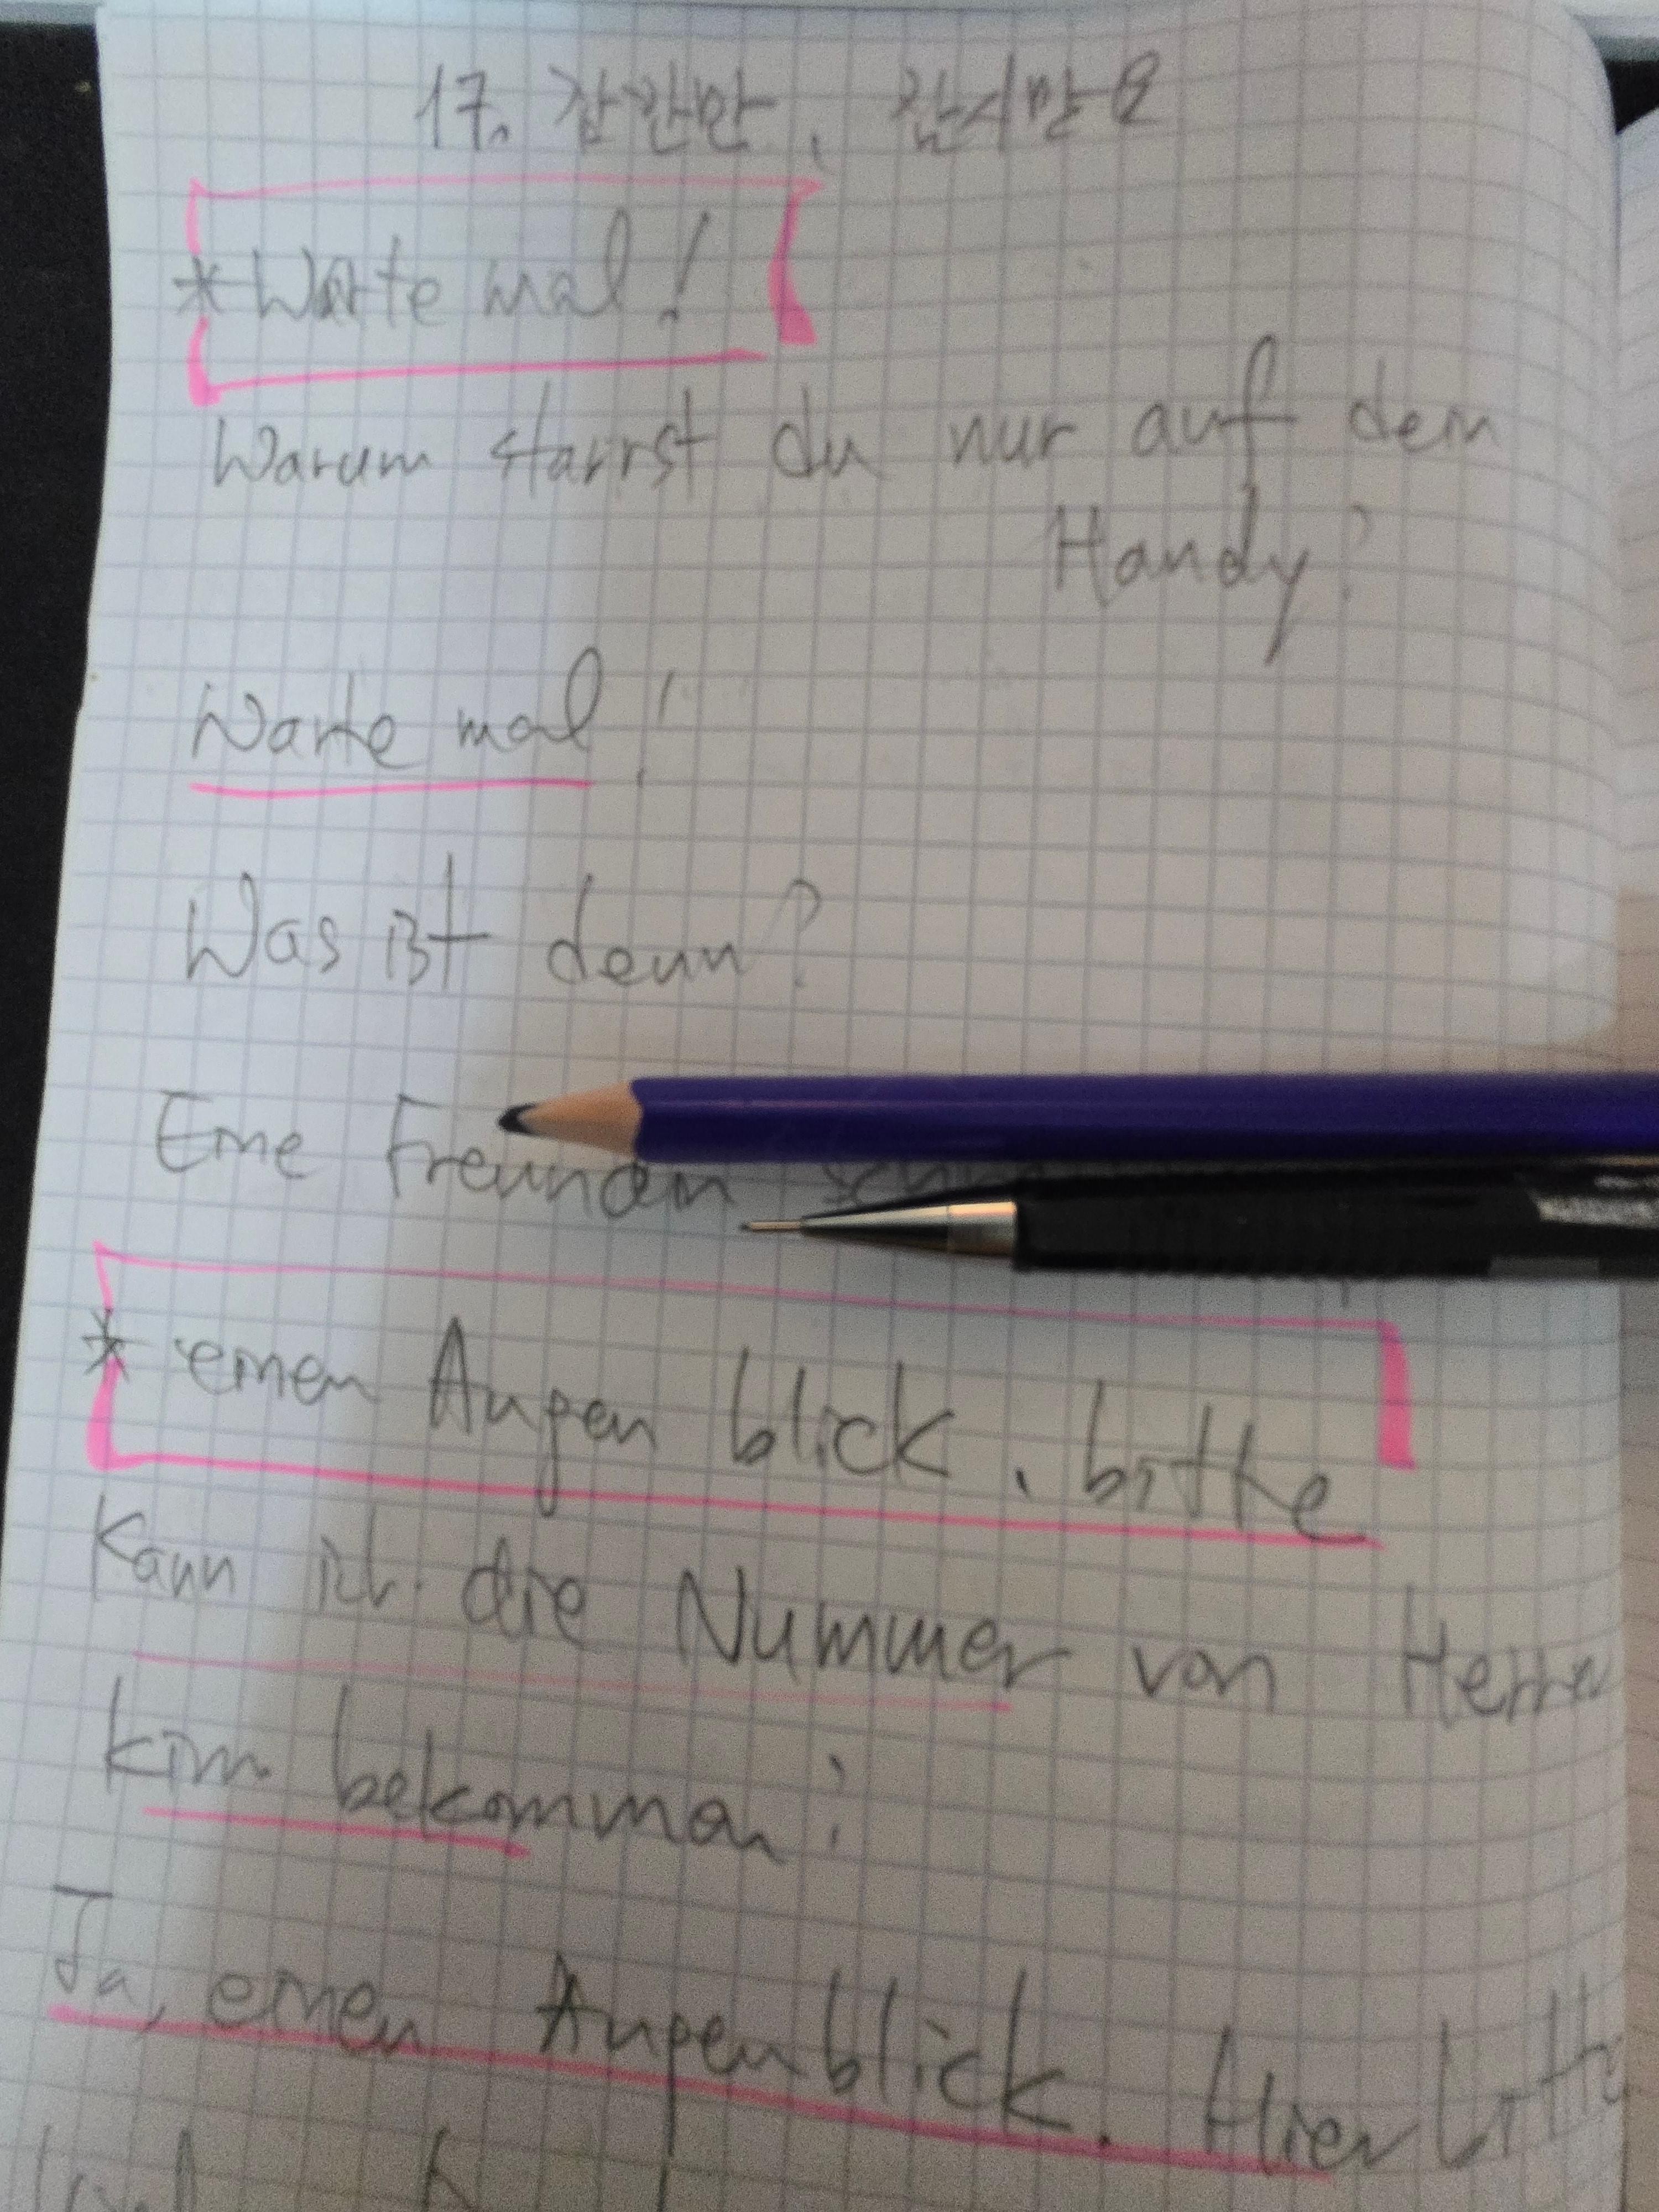 17. 잠깐만, 잠시만요
* Warte mal!
Warum starrst du nur auf dein
Handy?
Warte mal!
Was ist denn?
Eine Freundin
* einen Augen blick, bitte
Kann ich die Nummer von Herrn
Kim bekommen?
Ja, einen Augenblick. Hier bitte